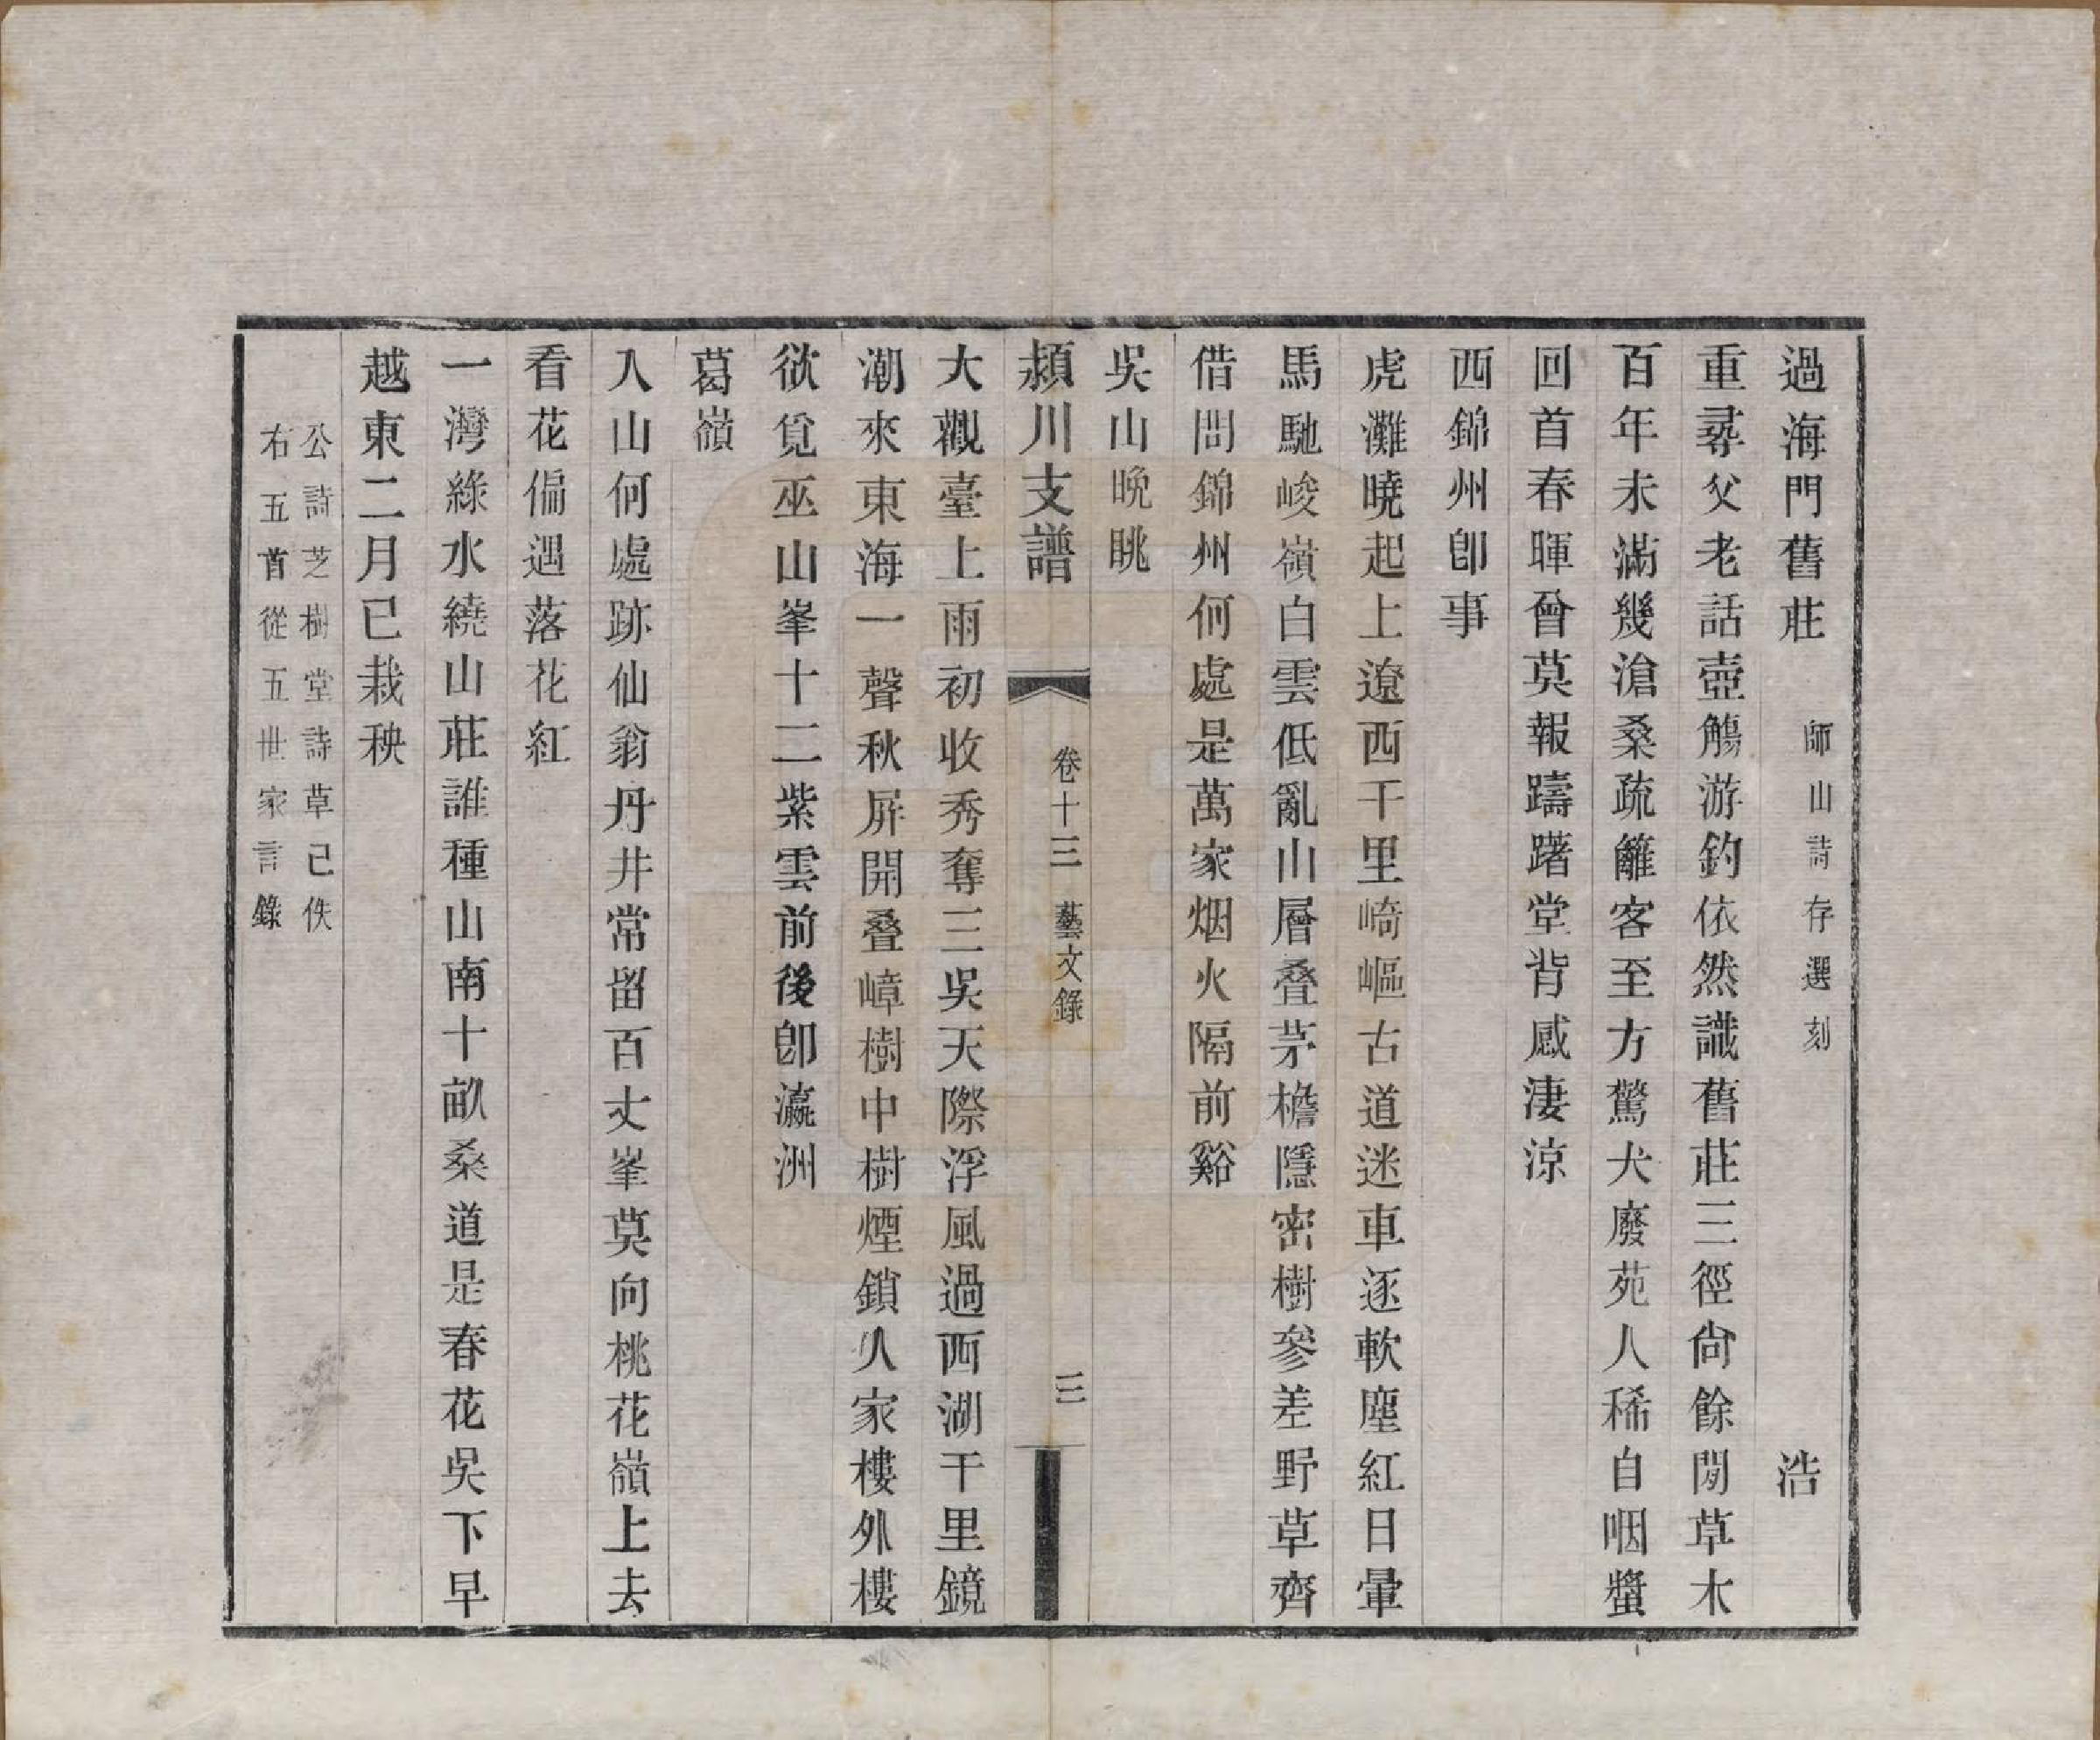 過海門舊莊 師山詩存選刻 浩
重尋父老話壺觴游釣依然識舊莊三徑尙餘閒草木
百年未滿幾滄桑疏籬客至方驚犬廢苑人稀自咽螿
回首春暉曾莫報躊躇堂背感淒涼
西錦州卽事
虎灘曉起上遼西千里崎嶇古道迷車逐軟塵紅日暈
馬馳峻嶺白雲低亂山層叠茅檐隱密樹參差野草齊
借問錦州何處是萬家烟火隔前谿
吳山晚眺
潁川支譜 卷十三 藝文錄 三
大觀臺上雨初收秀奪三吳天際浮風過西湖千里鏡
潮來東海一聲秋屏開叠嶂樹中樹煙鎖人家樓外樓
欲覓巫山峯十二紫雲前後卽瀛洲
葛嶺
入山何處跡仙翁丹井常留百丈峯莫向桃花嶺上去
看花偏遇落花紅
一灣綠水繞山莊誰種山南十畝桑道是春花吳下早
越東二月已栽秧
公詩芝樹堂詩草已佚
右五首從五世家言錄